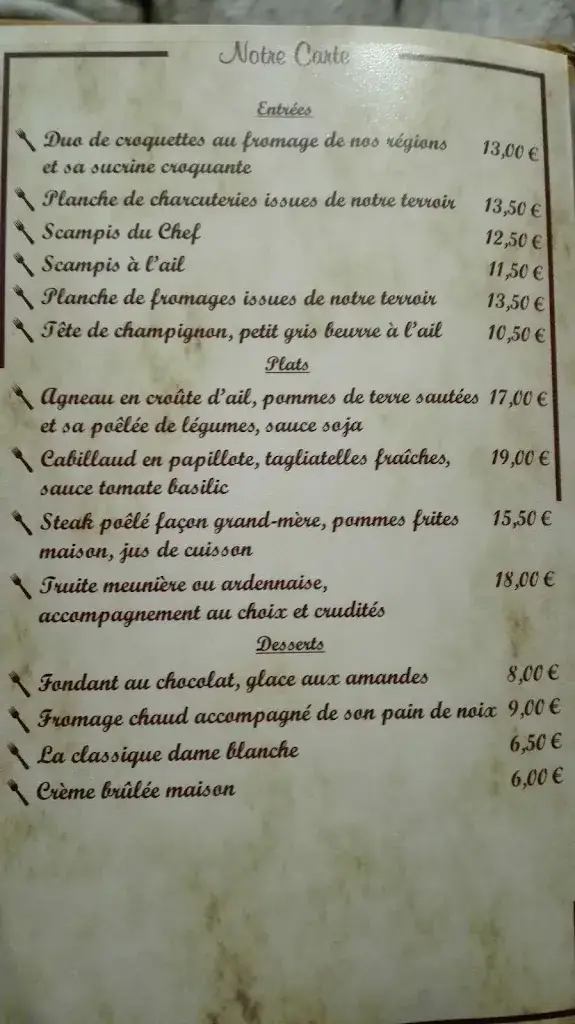 Notre Carte
Entrées
Duo de croquettes au fromage de nos régions 13,00 €
et sa sucrine croquante
Planche de charcuteries issues de notre terroir 13,50 €
Scampis du Chef 12,50 €
Scampis à l'ail 11,50 €
Planche de fromages issues de notre terroir 13,50 €
Tête de champignon, petit gris beurre à l'ail 10,50 €
Plats
Agneau en croûte d'ail, pommes de terre sautées 17,00 €
et sa poêlée de légumes, sauce soja
Cabillaud en papillote, tagliatelles fraîches, 19,00 €
sauce tomate basilic
Steak poêlé façon grand-mère, pommes frites 15,50 €
maison, jus de cuisson
Truite meunière ou ardennaise, 18,00 €
accompagnement au choix et crudités
Desserts
Fondant au chocolat, glace aux amandes 8,00 €
Fromage chaud accompagné de son pain de noix 9,00 €
La classique dame blanche 6,50 €
Crème brûlée maison 6,00 €